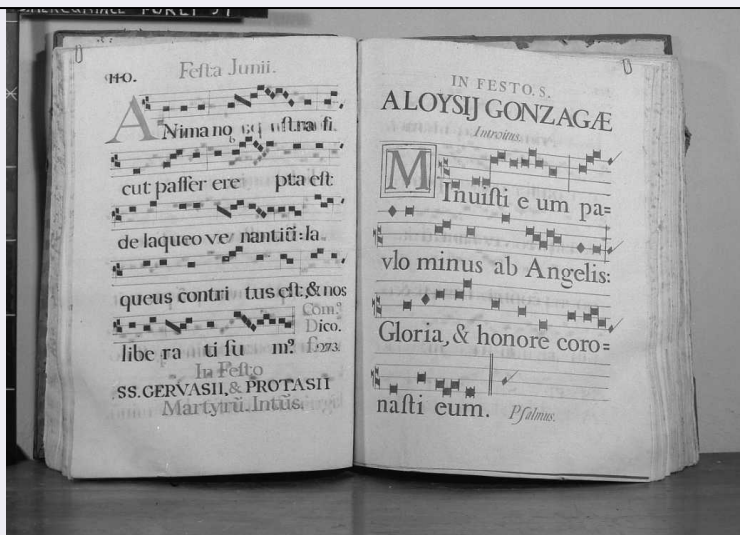 110.
Festa Junii.
ANima no stra si
cut passer ere pta est:
de laqueo ve nantiũ: la
queus contri tus est; & nos
Com.º
Dico.
libe ra ti su m⁹. f. 273.
In Festo
SS. GERVASII, & PROTASII
Martyrũ. Intũs.
IN FESTO. S.
ALOYSIJ GONZAGÆ
Introitus.
MInuisti e um pa=
vlo minus ab Angelis:
Gloria, & honore coro=
nasti eum. Psalmus.